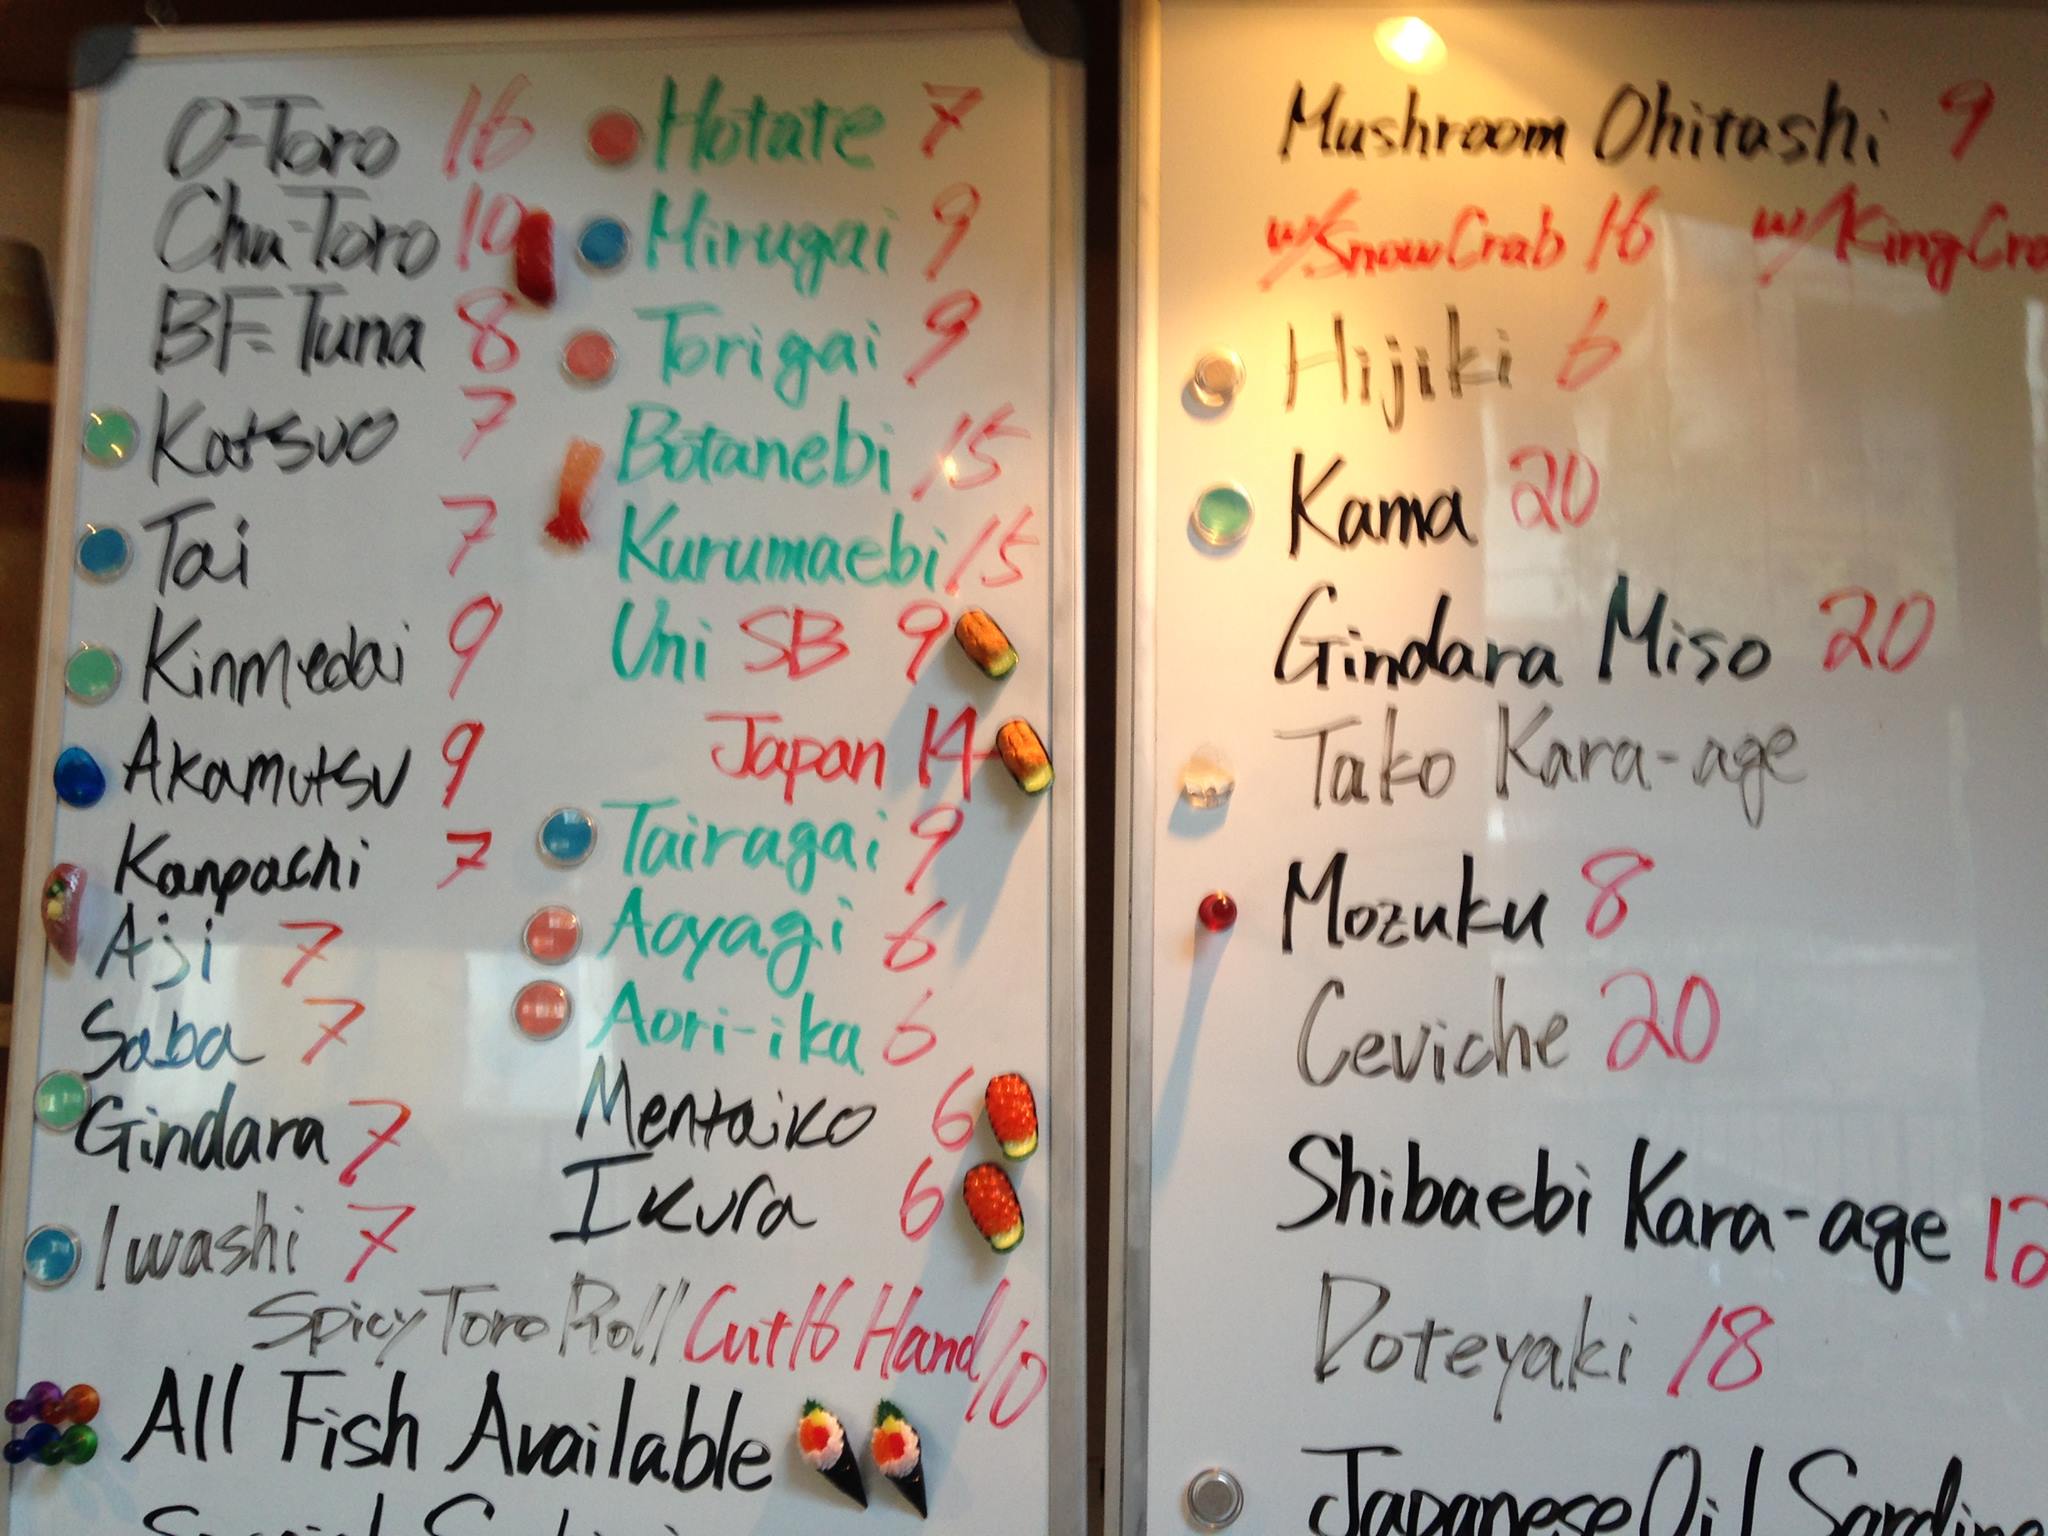 O-Toro 16
Chu-Toro 10
BF-Tuna 8
Katsuo 7
Tai 7
Kinmedai 9
Akamutsu 9
Kanpachi 7
Aji 7
Saba 7
Gindara 7
Iwashi 7
Hotate 7
Mirugai 9
Torigai 9
Botanebi 15
Kurumaebi 15
Uni SB 9
Japan 14
Tairagai 9
Aoyagi 6
Aori-ika 6
Mentaiko 6
Ikura 6
Spicy Toro Roll Cut 16 Hand 10
All Fish Available
Mushroom Ohitashi 9
w/Snow Crab 16 w/King Cra
Hijiki 6
Kama 20
Gindara Miso 20
Tako Kara-age
Mozuku 8
Ceviche 20
Shibaebi Kara-age 12
Doteyaki 18
Japanese Oil Sardine